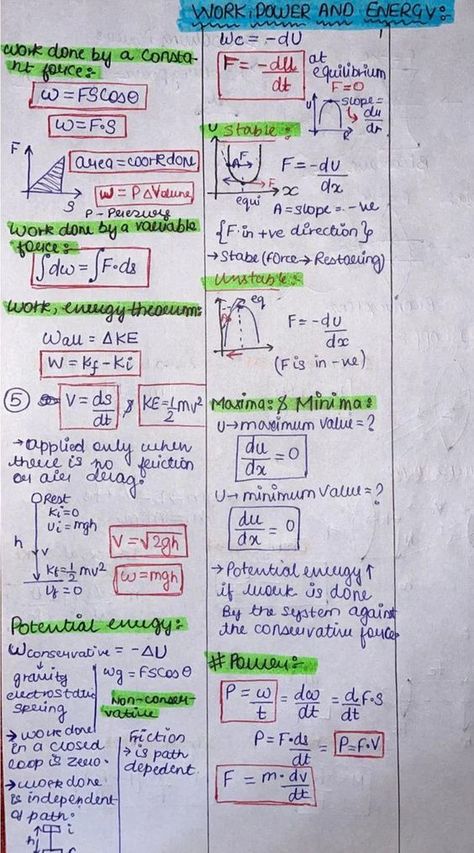 WORK, POWER AND ENERGY:
Work done by a consta-
nt force:-
W = FScosθ
W = F·S
F
area = workdone
W = PΔVolume
S
P -
Work done by a variable
force:-
∫dω = ∫F·ds
Work, energy theorem:
Wall = ΔKE
W = Kf - Ki
5
V = ds/dt & KE = 1/2 mv²
→ applied only when
there is no friction
or air drag.
Rest
Ki = 0
Ui = mgh
h
v
V = √2gh
Kf = 1/2 mv²
Uf = 0
ω = mgh
Potential energy:
Wconservative = -ΔU
gravity
electrostatic
spring
wg = FScosθ
Non-conser-
vative
→ work done
in a closed
loop is zero.
→ work done
is independent
of path.
i
h
Friction
→ is path
depedent
Wc = -dU
F = -dU/dt
at
equilibrium
F = 0
U
slope =
du/dr
R
U Stable:
F
A
F
x
equi
F = -dU/dx
A = slope = -ve
{F in +ve direction}
→ Stabe (force → Restoring)
Unstable:
eq
F = -dU/dx
(F is in -ve)
Maxima: & Minima:
U → maximum value = ?
du/dx = 0
U → minimum value = ?
du/dx = 0
→ Potential energy ↑
if work is done
By the system against
the conservative force
# Power:-
P = ω/t = dω/dt = d/dt F·S
P = F·ds/dt = P = F·V
F = m·dv/dt